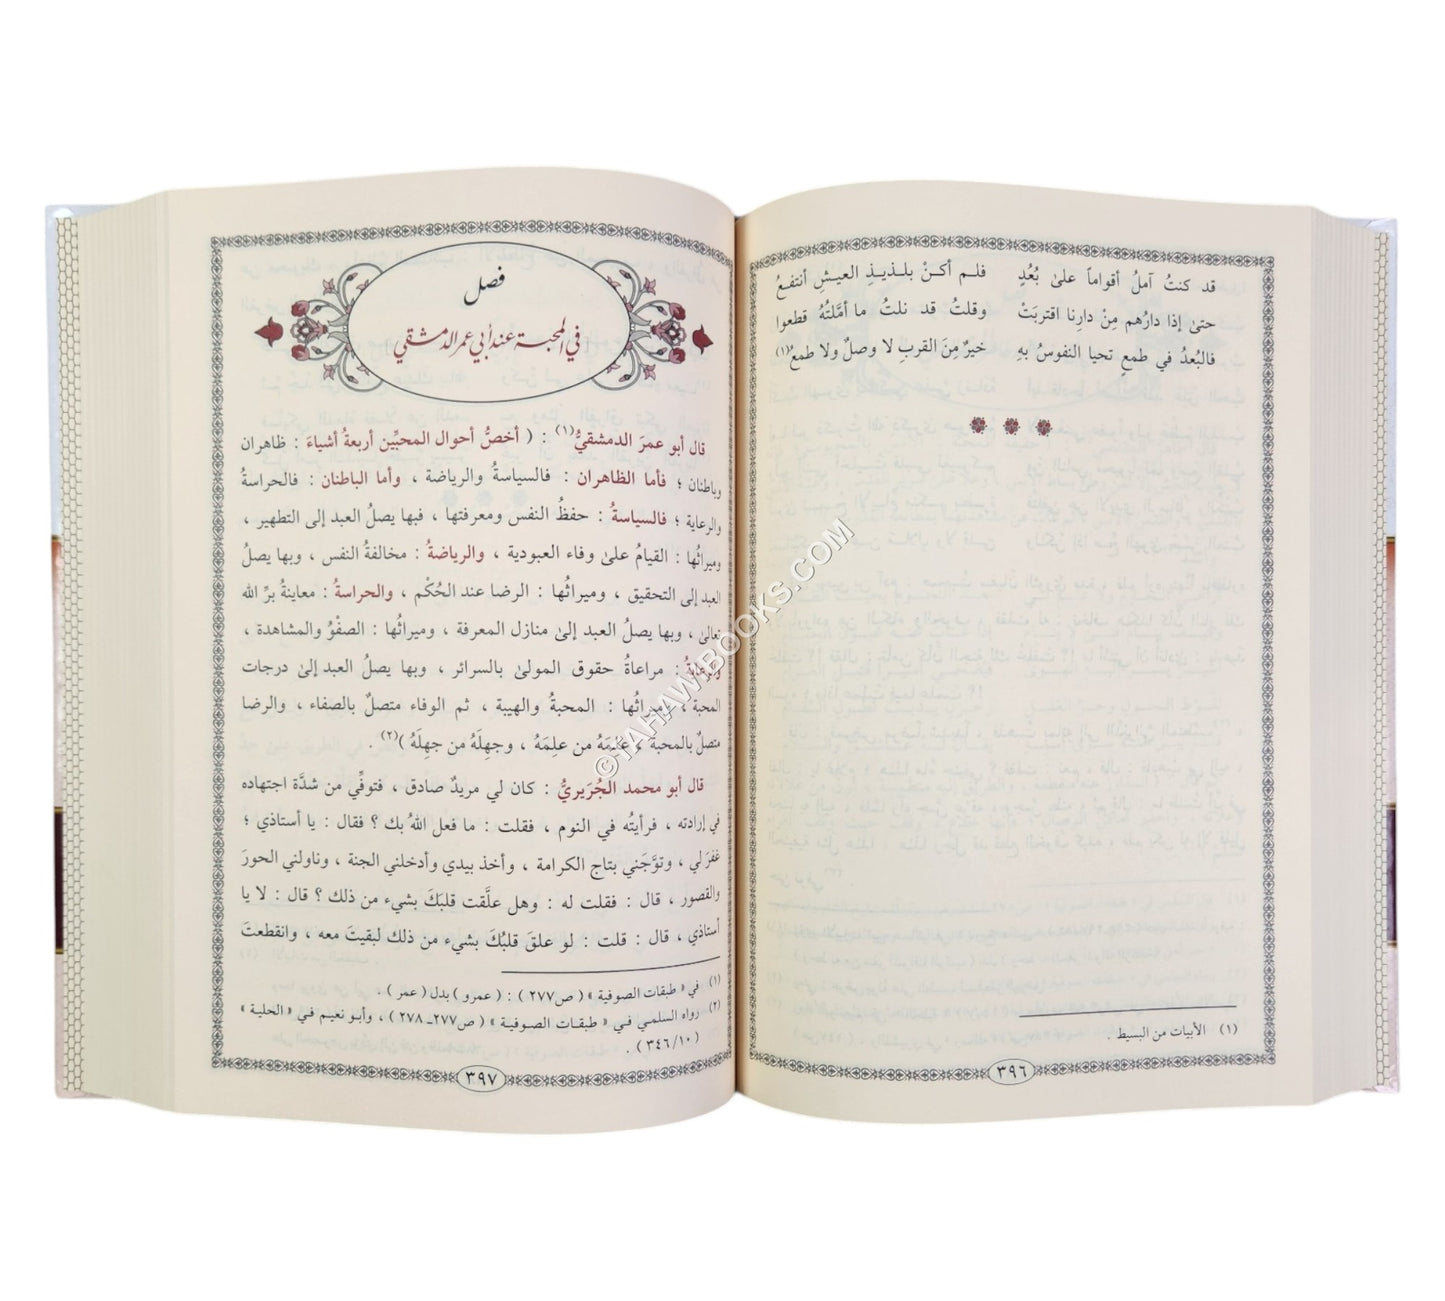 قد كنتُ آملُ أقواماً علىٰ بُعُدٍ فلم أكنْ بلذيذِ العيشِ أنتفعُ
حتىٰ إذا دارُهم مِنْ دارِنا اقتربَتْ وقلتُ قد نلتُ ما أمَّلتُهُ قطعوا
فالبُعدُ في طمعٍ تحيا النفوسُ بهِ خيرٌ مِنَ القربِ لا وصلٌ ولا طمعُ(١)
(١) الأبيات من البسيط .
٣٩٦
فصل
في المحبة عند أبي عمر الدمشقي
قال أبو عمرَ الدمشقيُّ(١) : ( أخصُّ أحوال المحبِّين أربعةُ أشياءَ : ظاهران
وباطنان ؛ فأما الظاهران : فالسياسةُ والرياضة ، وأما الباطنان : فالحراسةُ
والرعاية ؛ فالسياسةُ : حفظُ النفس ومعرفتها ، فبها يصلُ العبد إلى التطهير ،
وميراثُها : القيامُ علىٰ وفاء العبودية ، والرياضةُ : مخالفةُ النفس ، وبها يصلُ
العبد إلى التحقيق ، وميراثُها : الرضا عند الحُكْم ، والحراسةُ : معاينةُ برِّ الله
تعالىٰ ، وبها يصلُ العبد إلىٰ منازل المعرفة ، وميراثُها : الصفْوُ والمشاهدة ،
والرعايةُ : مراعاةُ حقوق المولىٰ بالسرائر ، وبها يصلُ العبد إلىٰ درجات
المحبة ، وميراثُها : المحبةُ والهيبة ، ثم الوفاء متصلٌ بالصفاء ، والرضا
متصلٌ بالمحبة ، علِمَهُ من علِمَهُ ، وجهِلَهُ من جهِلَهُ )(٢) .
قال أبو محمد الجُرَيريُّ : كان لي مريدٌ صادق ، فتوفِّي من شدَّة اجتهاده
في إرادته ، فرأيتُه في النوم ، فقلت : ما فعل اللهُ بك ؟ فقال : يا أستاذي ؛
غفرَ لي ، وتوَّجَني بتاج الكرامة ، وأخذ بيدي وأدخلني الجنة ، وناولني الحورَ
والقصور ، قال : فقلت له : وهل علَّقت قلبَكَ بشيء من ذلك ؟ قال : لا يا
أستاذي ، قال : قلت : لو علقَ قلبُكَ بشيء من ذلك لبقيتَ معه ، وانقطعتَ
(١) في « طبقات الصوفية » ( ص٢٧٧ ) : ( عمرو ) بدل ( عمر ) .
(٢) رواه السلمي في « طبقات الصوفية » ( ص٢٧٧ـ ٢٧٨ ) ، وأبو نعيم في « الحلية »
( ٣٤٦/١٠ ) .
٣٩٧
©TAHAWIBOOKS.COM